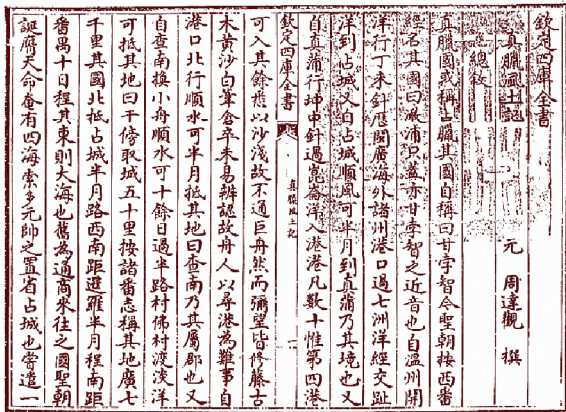 欽定四庫全書
真臘風土記 元 周達觀 撰
總敘
真臘國或稱占臘其國自稱曰甘孛智今聖朝按西番
經名其國曰澉浦只蓋亦甘孛智之近音也自温州開
洋行丁未針歷閩廣海外諸州港口過七洲洋經交趾
洋到占城又自占城順風可半月到真蒲乃其境也又
自真蒲行坤申針過崑崙洋入港港凡數十惟第四港
欽定四庫全書 真臘風土記 一
可入其餘悉以沙淺故不通巨舟然而彌望皆修藤古
木黄沙白葦倉卒未易辨認故舟人以尋港為難事自
港口北行順水可半月抵其地曰查南乃其屬郡也又
自查南換小舟順水可十餘日過半路村佛村渡淡洋
可抵其地曰干傍取城五十里按諸番志稱其地廣七
千里其國北抵占城半月路西南距暹羅半月程南距
番禺十日程其東則大海也舊為通商來往之國聖朝
誕膺天命奄有四海索多元帥之置省占城也嘗遣一